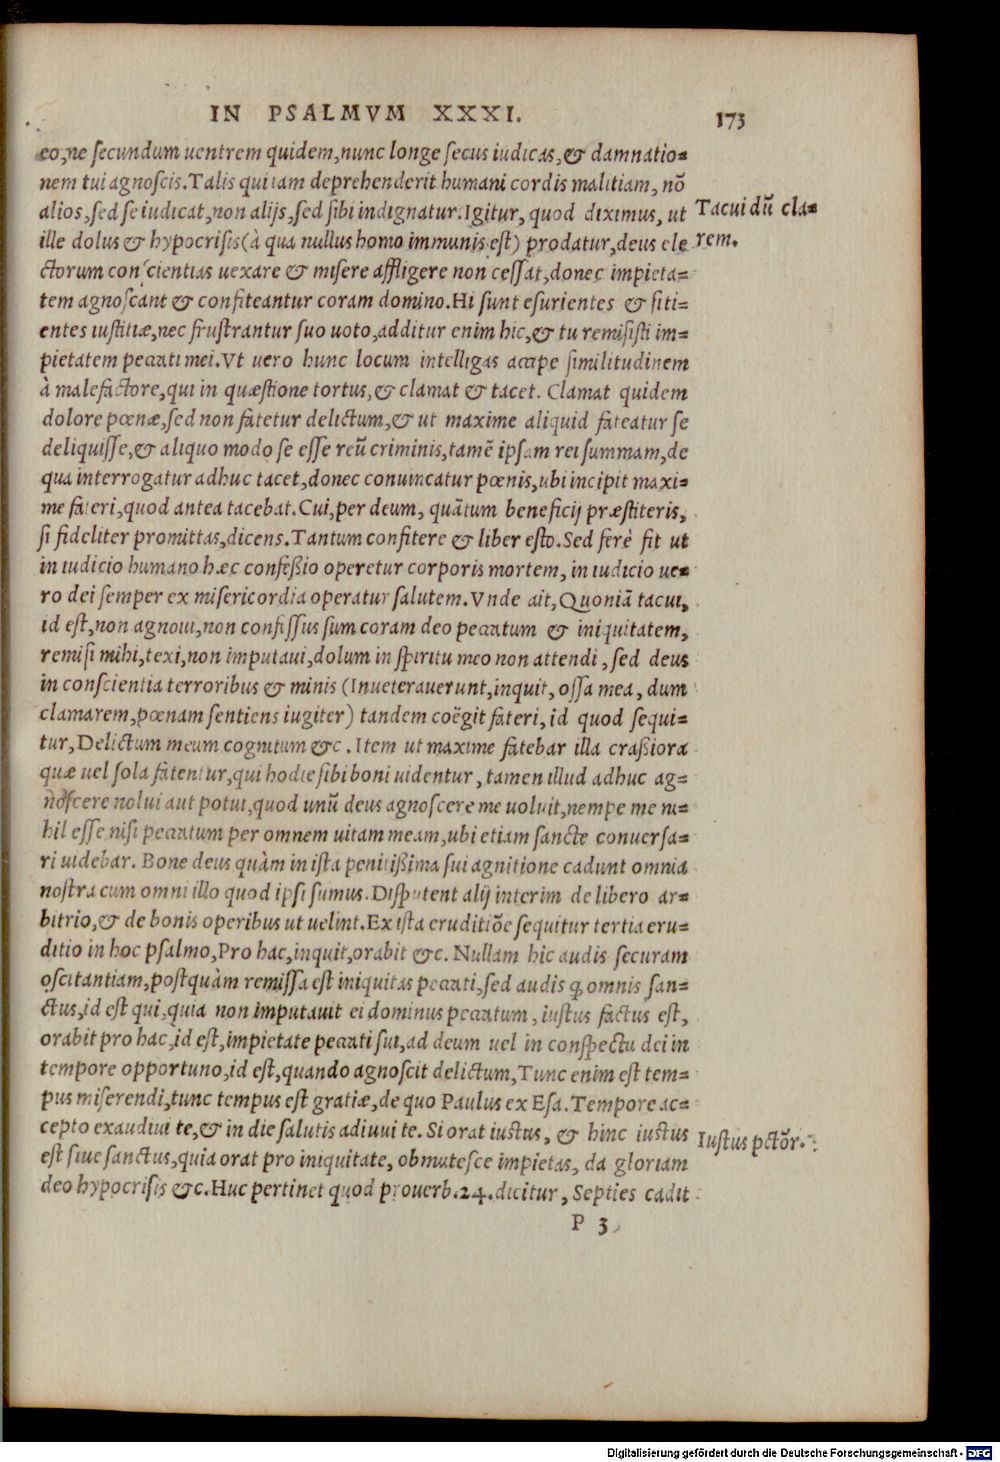 IN PSALMVM XXXI. 173
eo,ne secundum uentrem quidem,nunc longe secus iudicas,& damnatio=
nem tui agnoscis.Talis qui iam deprehenderit humani cordis malitiam, nō
alios,sed se iudicat,non alijs,sed sibi indignatur.Igitur, quod diximus, ut
Tacui dū cla=
ille dolus & hypocrisis(à qua nullus homo immunis est) prodatur,deus ele
rem.
ctorum conscientias uexare & misere affligere non cessat,donec impieta=
tem agnoscant & confiteantur coram domino.Hi sunt esurientes & siti=
entes iustitiæ,nec frustrantur suo uoto,additur enim hic,& tu remisisti im=
pietatem peccati mei.Vt uero hunc locum intelligas accipe similitudinem
à malefactore,qui in quæstione tortus,& clamat & tacet. Clamat quidem
dolore pœnæ,sed non fatetur delictum,& ut maxime aliquid fateatur se
deliquisse,& aliquo modo se esse reū criminis,tamē ipsam rei summam,de
qua interrogatur adhuc tacet,donec conuincatur pœnis,ubi incipit maxi=
me fateri,quod antea tacebat.Cui,per deum, quātum beneficij præstiteris,
si fideliter promittas,dicens.Tantum confitere & liber esto.Sed ferè fit ut
in iudicio humano hæc confeßio operetur corporis mortem, in iudicio ue=
ro dei semper ex misericordia operatur salutem.Vnde ait,Quoniā tacui,
id est,non agnoui,non confissus sum coram deo peccatum & iniquitatem,
remisi mihi,texi,non imputaui,dolum in spiritu meo non attendi, sed deus
in conscientia terroribus & minis (Inueterauerunt,inquit, ossa mea, dum
clamarem,pœnam sentiens iugiter) tandem coëgit fateri, id quod sequi=
tur,Delictum meum cognitum &c. Item ut maxime fatebar illa craßiora
quæ uel sola fatentur,qui hodie sibi boni uidentur, tamen illud adhuc ag=
noscere nolui aut potui,quod unū deus agnoscere me uoluit,nempe me ni=
hil esse nisi peccatum per omnem uitam meam,ubi etiam sancte conuersa=
ri uidebar. Bone deus quàm in ista penitißima sui agnitione cadunt omnia
nostra cum omni illo quod ipsi sumus.Disputent alij interim de libero ar=
bitrio,& de bonis operibus ut uelint.Ex ista eruditiōe sequitur tertia eru=
ditio in hoc psalmo,Pro hac,inquit,orabit &c. Nullam hic audis securam
oscitantiam,postquàm remissa est iniquitas peccati,sed audis ꝙ omnis san=
ctus,id est qui,quia non imputauit ei dominus peccatum, iustus factus est,
orabit pro hac,id est,impietate peccati sui,ad deum uel in conspectu dei in
tempore opportuno,id est,quando agnoscit delictum,Tunc enim est tem=
pus miserendi,tunc tempus est gratiæ,de quo Paulus ex Esa.Tempore ac=
cepto exaudiui te,& in die salutis adiuui te. Si orat iustus, & hinc iustus
Iustus pctōr.
est siue sanctus,quia orat pro iniquitate, obmutesce impietas, da gloriam
deo hypocrisis &c.Huc pertinet quod prouerb.24.dicitur, Septies cadit
P 3
Digitalisierung gefördert durch die Deutsche Forschungsgemeinschaft - DFG